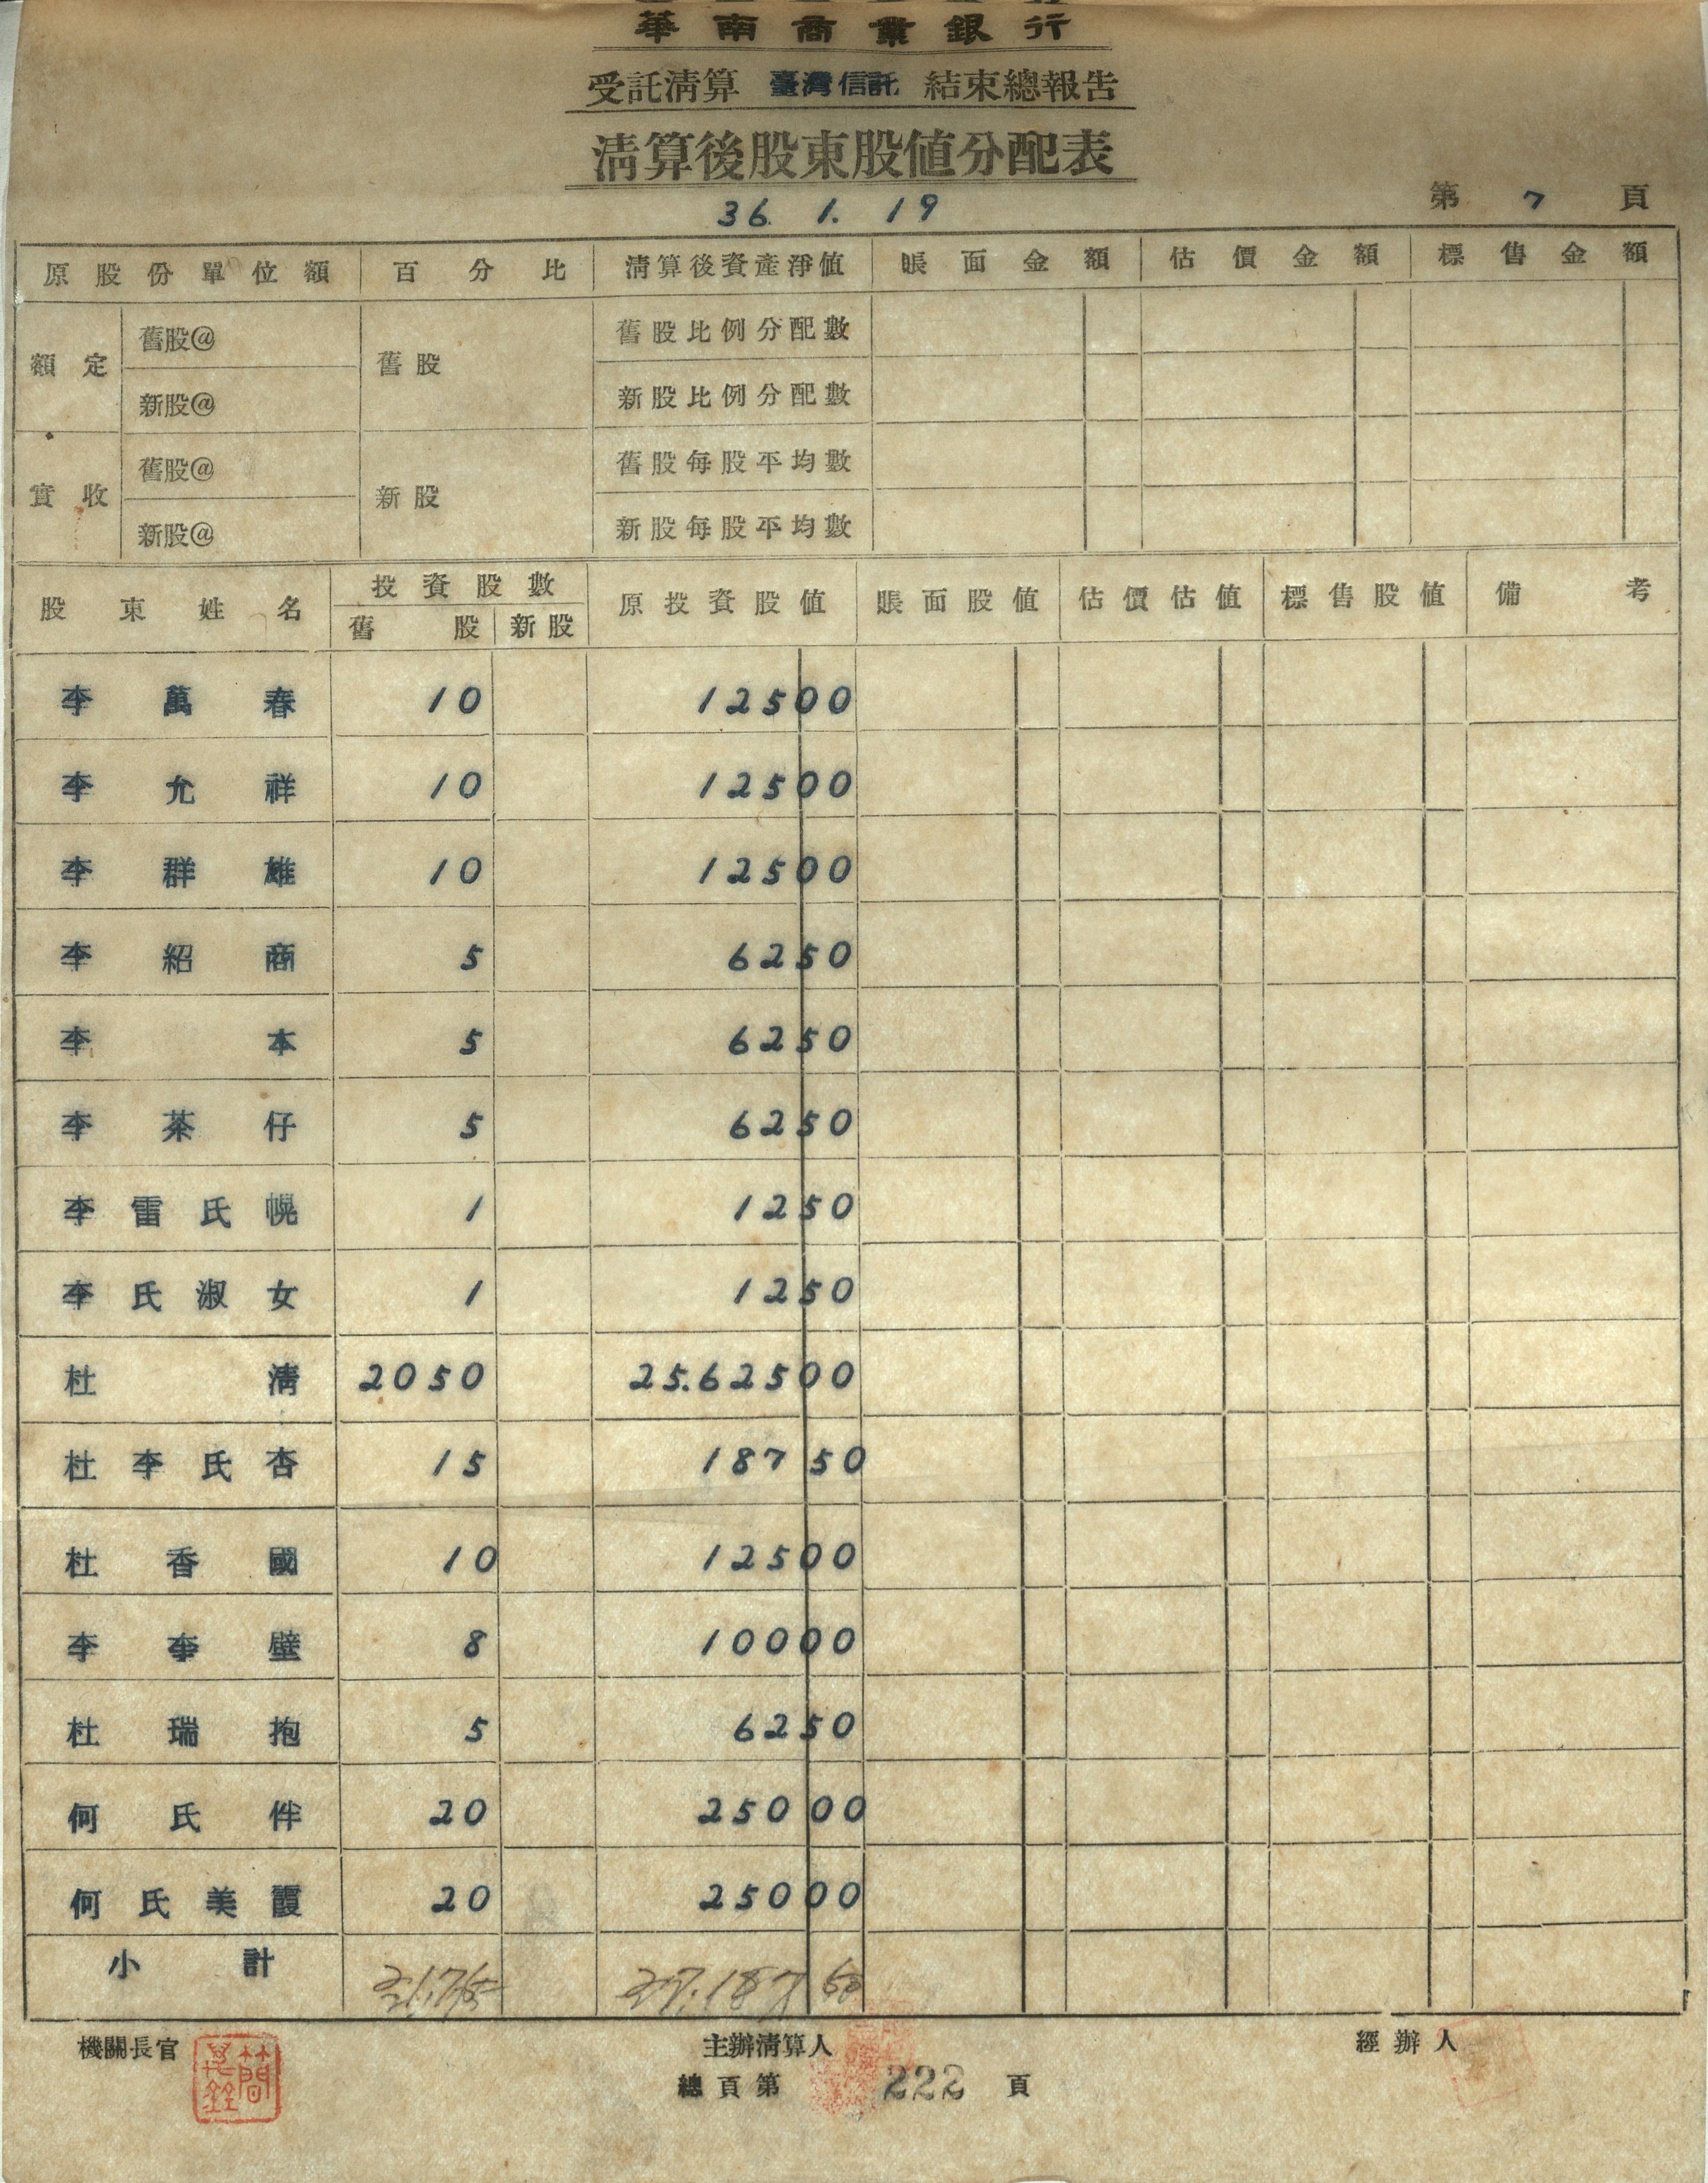 華南商業銀行
受託清算 臺灣信託 結束總報告
清算後股東股值分配表
36. 1. 19
第 7 頁
原股份單位額 百分比 清算後資產淨值 賬面金額 估價金額 標售金額
額定 舊股@ 舊股 舊股比例分配數
新股@ 新股比例分配數
實收 舊股@ 新股 舊股每股平均數
新股@ 新股每股平均數
股東姓名 投資股數 原投資股值 賬面股值 估價估值 標售股值 備考
舊股 新股
李萬春 10 12500
李允祥 10 12500
李群雄 10 12500
李紹商 5 6250
李本 5 6250
李茶仔 5 6250
李雷氏幌 1 1250
李氏淑女 1 1250
杜清 2050 25.62500
杜李氏杏 15 18750
杜香國 10 12500
李李壁 8 10000
杜瑞抱 5 6250
何氏伴 20 25000
何氏美霞 20 25000
小計 2,175 27.187 50
機關長官 主辦清算人 經辦人
總頁第 222 頁